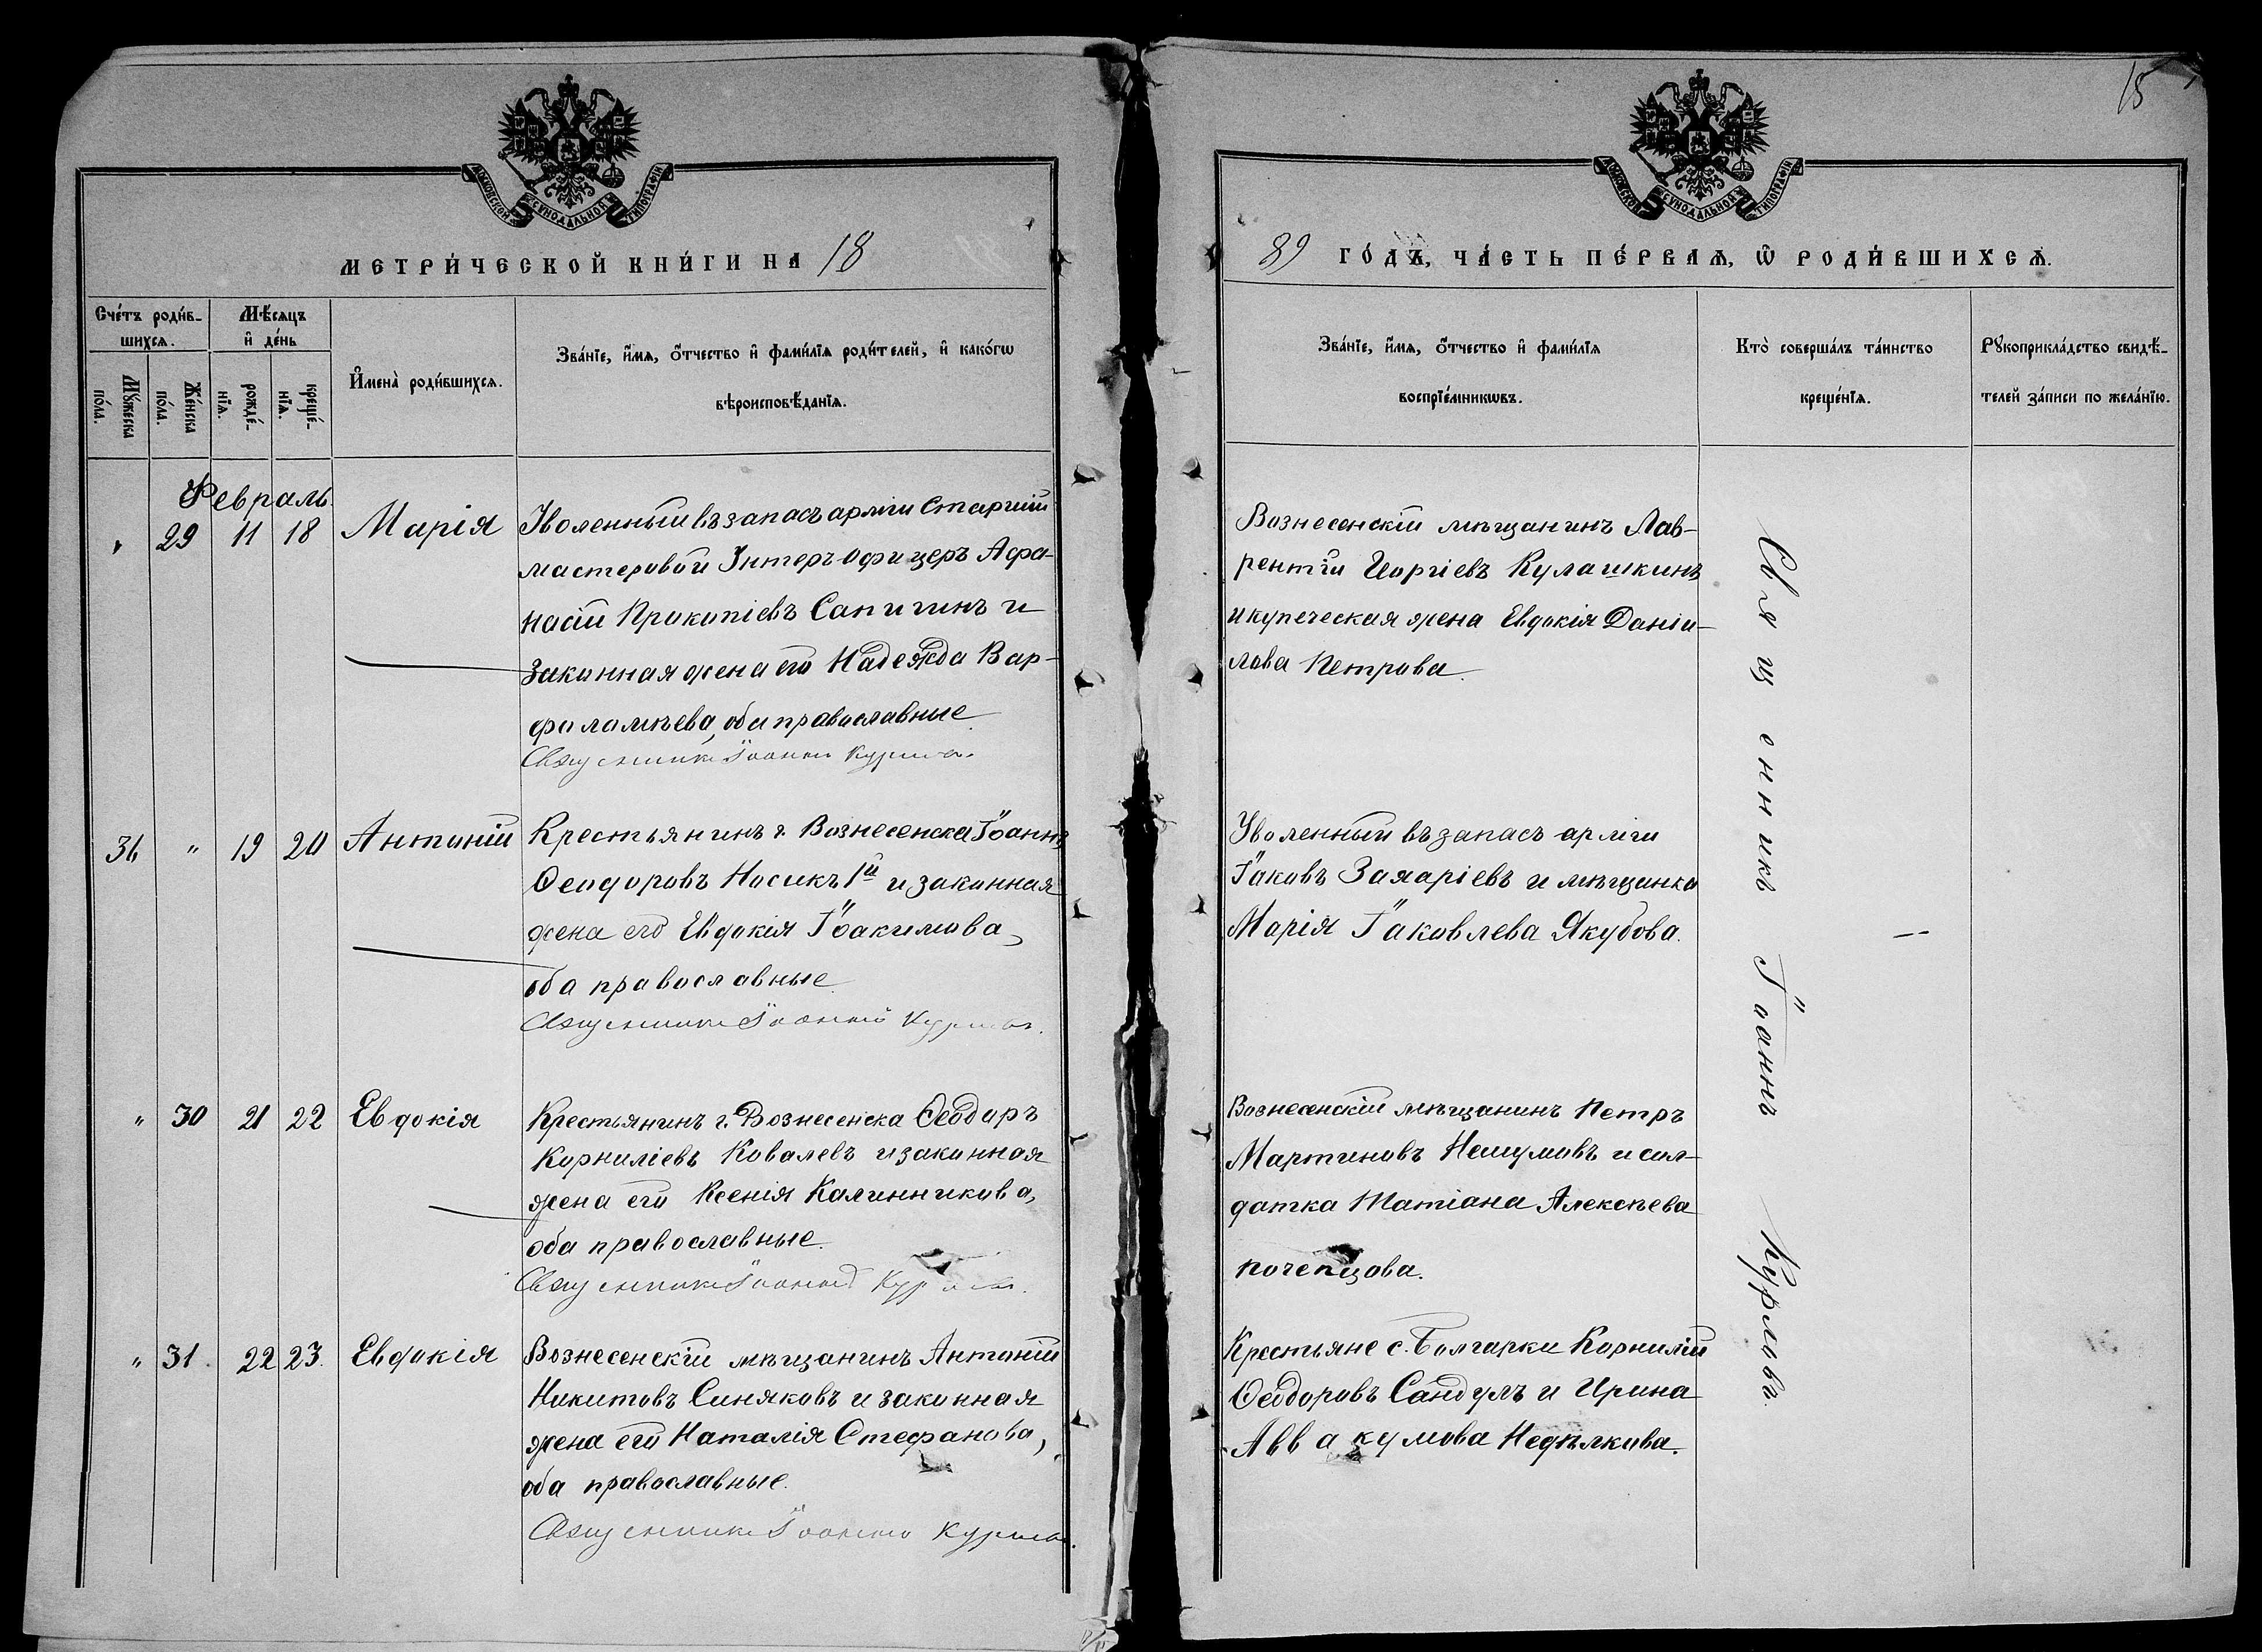 15
МОСКОВСКОЙ СѴНОДАЛЬНОЙ ТИПОГРАФІИ
МОСКОВСКОЙ СѴНОДАЛЬНОЙ ТИПОГРАФІИ
МЕТРИ́ЧЕСКОЙ КНИ́ГИ НА 18
89 ГО́ДЪ, ЧА́СТЬ ПЕ́РВАѦ, Ѿ РОДИ́ВШИХСѦ.
Сче́тъ роди́в-
шихсѧ.
Мѣ́сѧцъ
и҆ де́нь
Мꙋ́жеска
по́ла.
Же́нска
по́ла.
рожде́-
нїѧ.
креще́-
нїѧ.
И҆мена̀ роди́вшихсѧ.
Зва́нїе, и҆́мѧ, ѻ҆́тчество и҆ фами́лїѧ роди́телей, и҆ како́гѡ
вѣроисповѣ́данїѧ.
Зва́нїе, и҆́мѧ, ѻ҆́тчество и҆ фами́лїѧ
воспрїе́мникѡвъ.
Кто̀ соверша́лъ та́инство
креще́нїѧ.
Рꙋкоприкла́дство свидѣ́-
телей за́писи по жела́нїю.
Февраль
" 29 11 18 Марія
Уволенный въ запасъ арміи старшій
мастеровой Унтеръ-Офицеръ Афа-
насій Прокопіевъ Сапигинъ и
законная жена его Надежда Вар-
фоломѣева, оба православные
Священникъ Іоаннъ Курловъ.
Вознесенскій мѣщанинъ Лав-
рентій Георгіевъ Кулашкинъ
и купеческая жена Евдокія Даніи-
лова Петрова.
36 " 19 20 Антоній
Крестьянинъ г. Вознесенска Іоаннъ
Феодоровъ Носикъ 1й и законная
жена его Евдокія Іоакимова,
оба православные
Священникъ Іоаннъ Курловъ.
Уволенный въ запасъ арміи
Іаковъ Захаріевъ и мѣщанка
Марія Іаковлева Якубова.
" 30 21 22 Евдокія
Крестьянинъ г. Вознесенска Феодоръ
Корниліевъ Ковалевъ и законная
жена его Ксенія Калинникова,
оба православные.
Священникъ Іоаннъ Курловъ.
Вознесенскій мѣщанинъ Петръ
Мартиновъ Нешумовъ и сол-
датка Татіана Алексѣева
Почепцова.
" 31. 22 23. Евдокія
Вознесенскій мѣщанинъ Антоній
Никитовъ Синяковъ и законная
жена его Наталія Стефанова,
оба православные.
Священникъ Іоаннъ Курловъ.
Крестьяне с. Болгарки Корнилій
Феодоровъ Сандулъ и Ирина
Аввакумова Недѣлкова.
Священникъ Іоаннъ Курловъ.